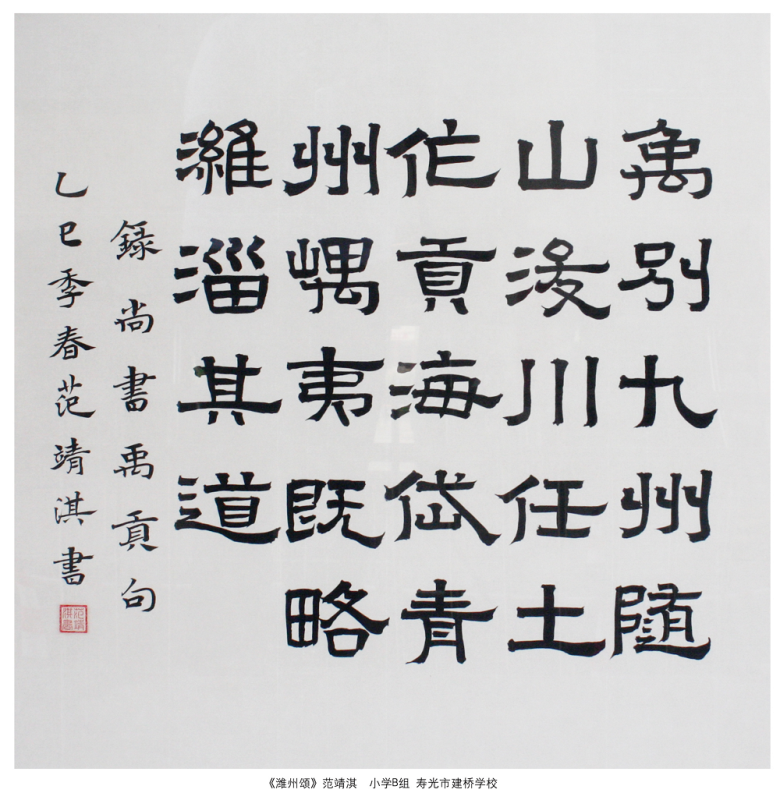 禹别九州随
山浚川任土
作貢海岱青
州嵎夷既略
濰淄其道
録尚書禹貢句
乙巳季春范靖淇書
《潍州颂》范靖淇 小学B组 寿光市建桥学校